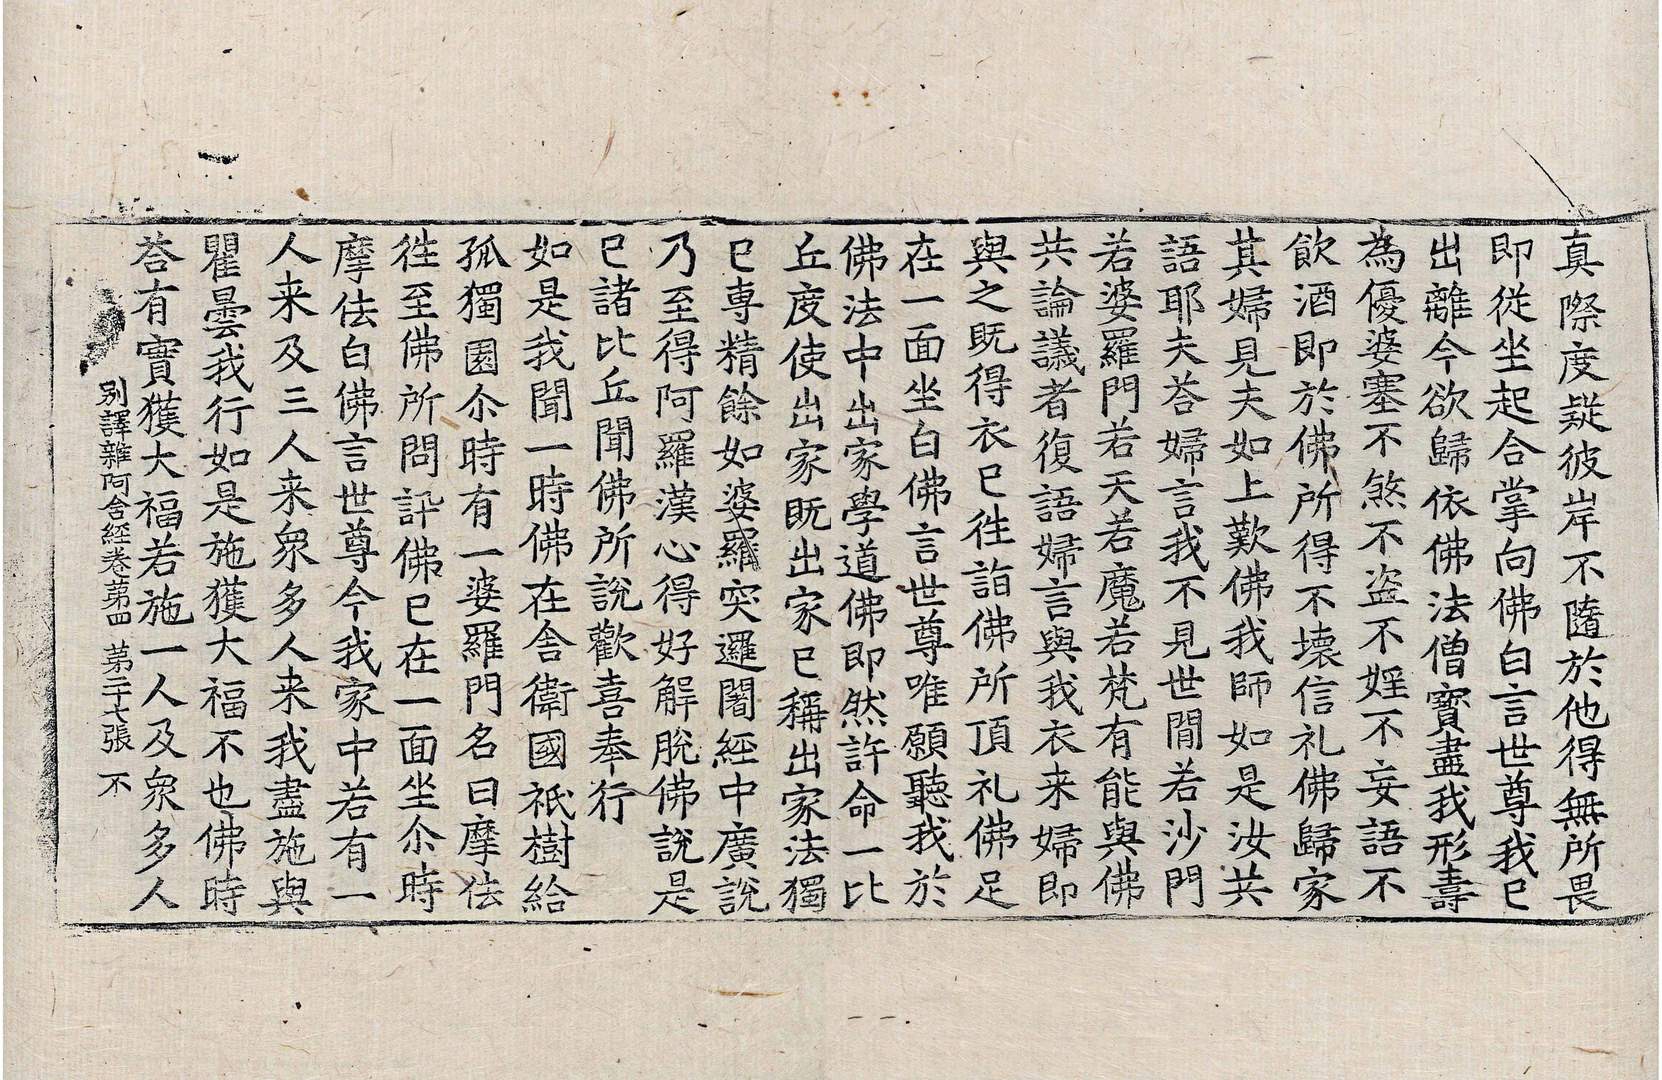 真際度疑彼岸不隨於他得無所畏
即從坐起合掌向佛白言世尊我已
出離今欲歸依佛法僧寶盡我形壽
為優婆塞不煞不盗不婬不妄語不
飲酒即於佛所得不壞信礼佛歸家
其婦見夫如上歎佛我師如是汝共
語耶夫荅婦言我不見世閒若沙門
若婆羅門若天若魔若梵有能與佛
共論議者復語婦言與我衣来婦即
與之既得衣已徃詣佛所頂礼佛足
在一面坐白佛言世尊唯願聽我於
佛法中出家學道佛即然許命一比
丘度使出家既出家已稱出家法獨
已専精餘如婆羅突邏闍經中廣說
乃至得阿羅漢心得好解脫佛說是
已諸比丘聞佛所說歡喜奉行
如是我聞一時佛在舍衛國祇樹給
孤獨園尒時有一婆羅門名曰摩佉
徃至佛所問訊佛已在一面坐尒時
摩佉白佛言世尊今我家中若有一
人来及三人来衆多人来我盡施與
瞿曇我行如是施獲大福不也佛時
荅有實獲大福若施一人及衆多人
别譯雜阿含經卷苐四 苐二十七張 不